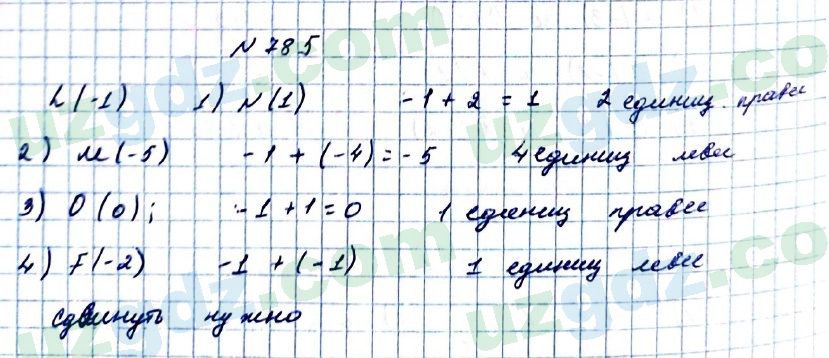 N 785
L(-1) 1) N(1) -1 + 2 = 1 2 единиц. правее
2) M(-5) -1 + (-4) = -5 4 единиц левее
3) O(0); -1 + 1 = 0 1 единиц правее
4) F(-2) -1 + (-1) 1 единиц левее
сдвинуть нужно
uzgdz.com